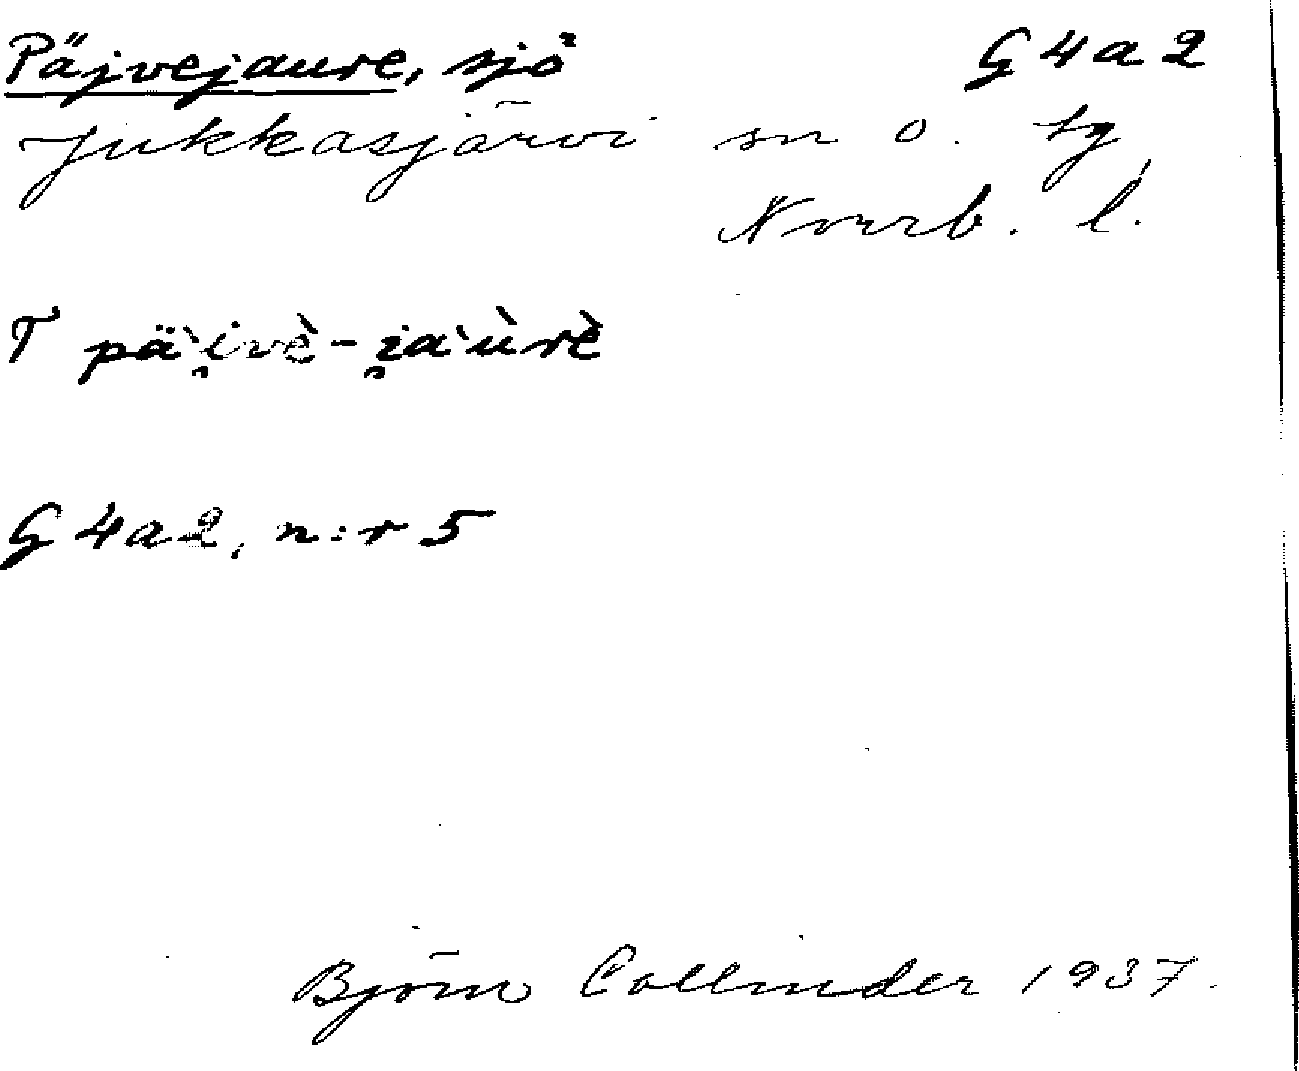 Päjvejaure, sjö G4a2
Jukkasjärvi sn o. tg,
Norrb. l.
T pä`i̯vè-i̯a`ùrè
G4a2, n:r 5
Björn Collinder 1937.